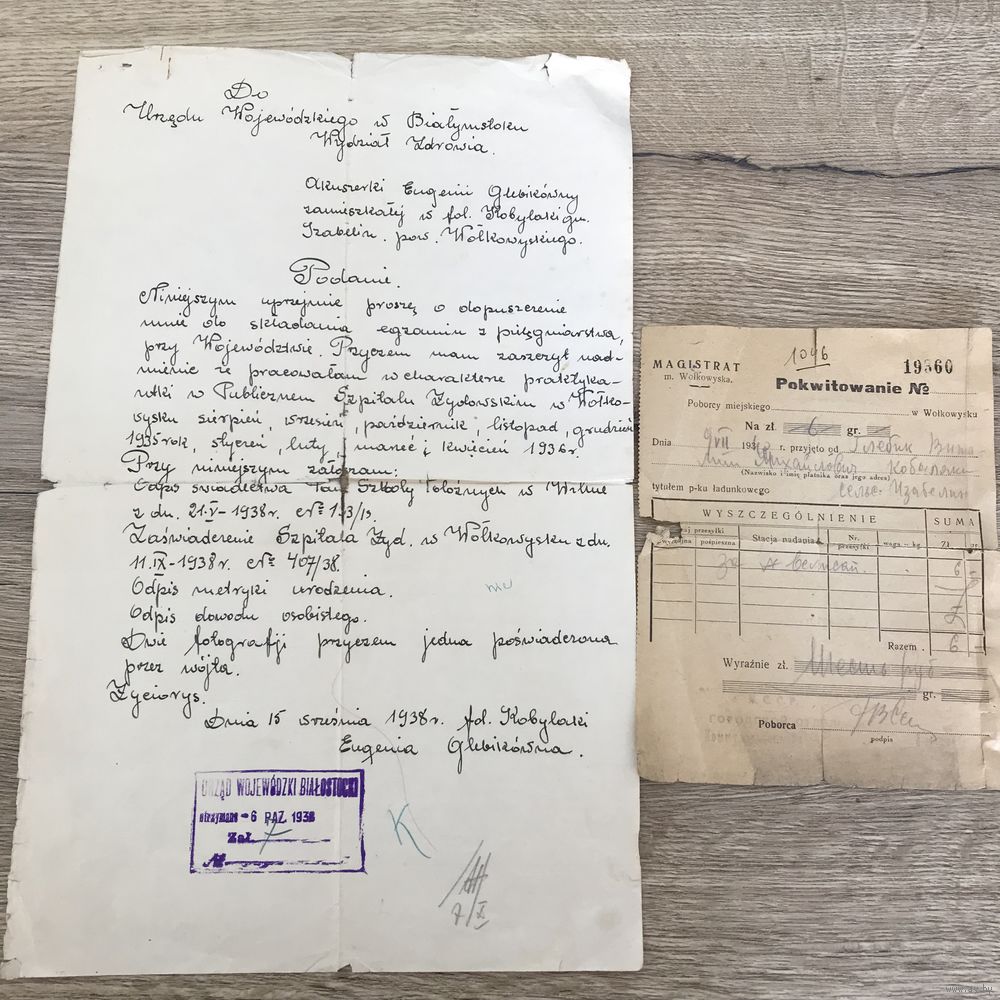 Do
Urzędu Wojewódzkiego w Białymstoku
Wydział Zdrowia.
Akuszerki Eugenii Glebikówny
zamieszkałej w fol. Kobylaki gm.
Izabelin. pow. Wołkowyskiego.
Podanie.
Niniejszym uprzejmie proszę o dopuszczenie
mnie do składania egzamin z pielęgniarstwa,
przy Województwie. Przyczem mam zaszczyt nad-
mienić że pracowałam w charakterze praktyka-
ntki w Publicznem Szpitalu Żydowskim w Wołko-
wysku sierpień, wrzesień, październik, listopad, grudzień
1935 rok, styczeń, luty, marzec i kwiecień 1936r.
Przy niniejszym załączam:
Odpis świadectwa Szkoły Położnych w Wilnie
z dn. 21.V-1938r. №
Zaświadczenie Szpitala Żyd. w Wołkowysku z dn.
11.IX-1938r. № 407/38.
Odpis metryki urodzenia.
Odpis dowodu osobistego.
Dwie fotografji przyczem jedna poświadczona
przez wójta.
Życiorys.
Dnia 15 września 1938r. fol. Kobylaki
Eugenia Glebikówna.
URZĄD WOJEWÓDZKI BIAŁOSTOCKI
otrzymano - 6 PAZ. 1938
Zał. 7
№
K
7/X
MAGISTRAT
m. Wołkowyska.
1096
19860
Pokwitowanie №
Poborcy miejskiego w Wołkowysku
Na zł. 6 gr.
Dnia 9 VII 193 r. przyjęto od Глебик
Михайлович
(Nazwisko i imię płatnika oraz jego adres)
tytułem p-ku ładunkowego сельс. Изабелин
WYSZCZEGÓLNIENIE SUMA
przesyłki Stacja nadania Nr. przesyłki waga - kg. Zł. gr.
pośpieszna
За 6 -
Razem . 6 -
Wyraźnie zł. Шесть руб
gr.
Poborca
podpis